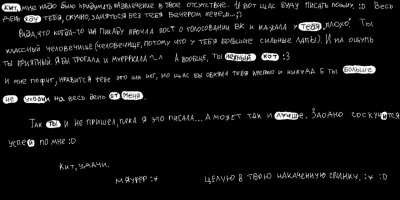 Кит, мне надо было придумать развлечение в твое отсутствие. И вот щас буду писать роман, :D Весь
очень хочу тебя, скучно, заняться без тебя вечером нечем...;)
Видь, что когда-то на пикабу прочла пост о голосовании ВК и нажала у тебя "плохо". Ты
классный человечище (человечище, потому что у тебя большие сильные лапы). И на ощупь
ты приятный. Я бы трогала и муррркала ^-^ А вообще, ты нежный кот :3
И мне пофиг, нравится тебе это или нет, но щас бы обняла тебя крепко и никуда б ты больше
не уходил на весь день от меня.
Так ты и не пришел, пока я это писала... А может так и лучше. Заодно соскучится
успел по мне :D
Кит, умачи.
Мяуррр :*
Целую в твою накаченную спинку. :* :D